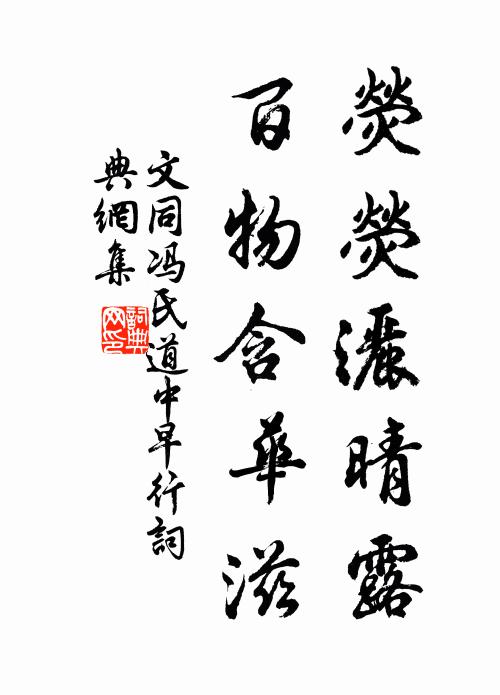 熒熒灑晴露
百物含華滋
文同冯氏道中早行詞
典網集
詞典
网印